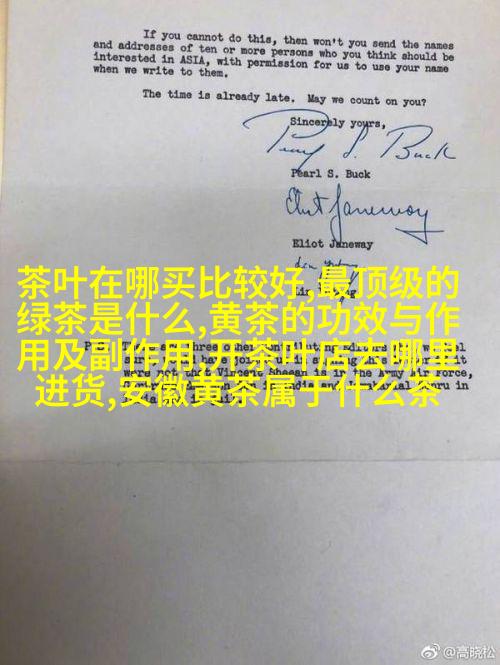 If you cannot do this, then won't you send the names
and addresses of ten or more persons who you think should be
interested in ASIA, with permission for us to use your name
when we write to them.
The time is already late. May we count on you?
Sincerely yours,
Pearl S. Buck
Pearl S. Buck
Eliot Janeway
Eliot Janeway
茶叶在哪买比较好,最顶级的
绿茶是什么,黄茶的功效与作
用及副作用,开茶叶店去哪里
进货,安徽黄茶属于什么茶
three other contributing editors
were not Vincent Sheean is in the Army Air Force,
@高晓松